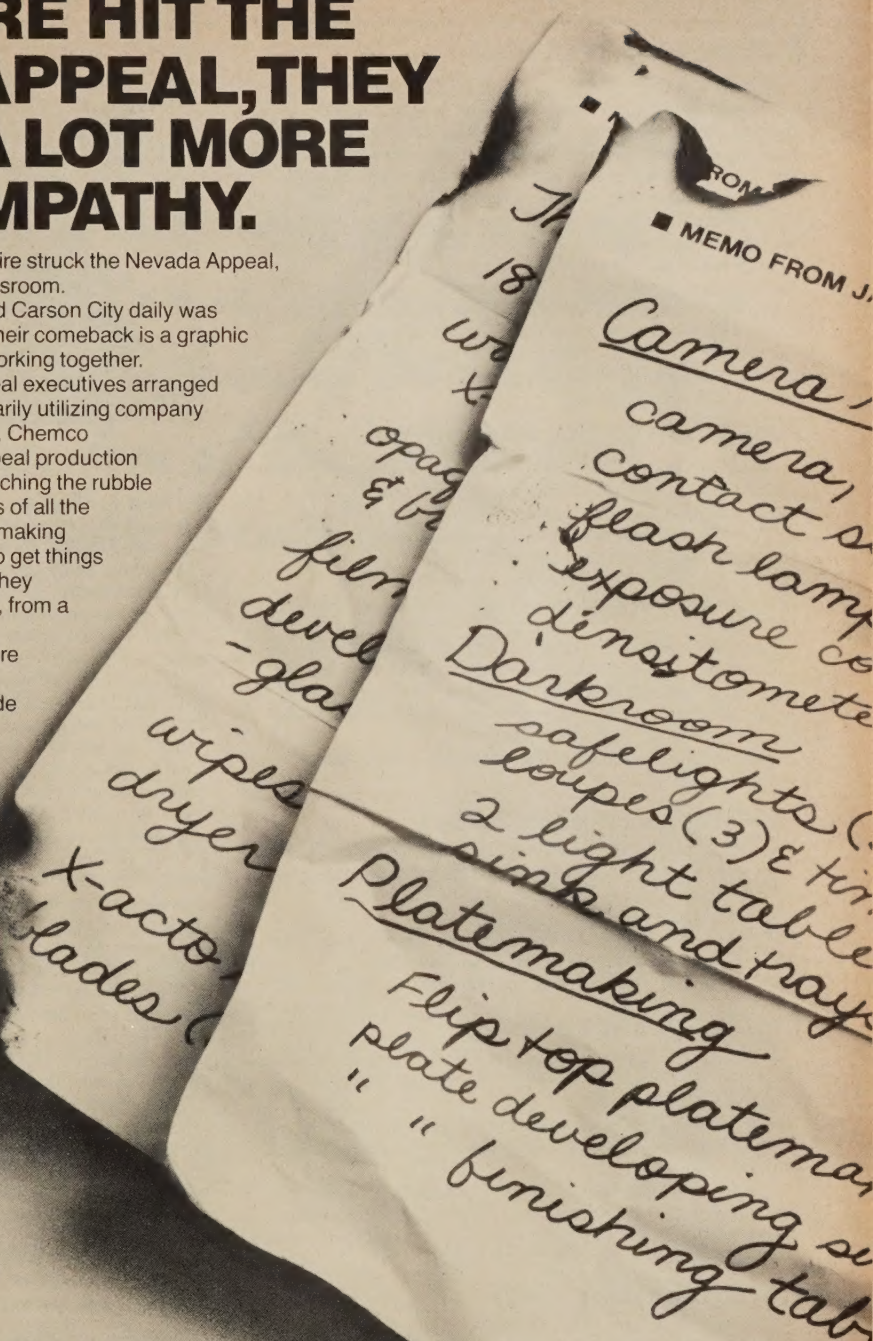 RE HIT THE
APPEAL, THEY
A LOT MORE
MPATHY.
ire struck the Nevada Appeal,
sroom.
d Carson City daily was
heir comeback is a graphic
orking together.
al executives arranged
arily utilizing company
Chemco
eal production
ching the rubble
s of all the
making
o get things
hey
, from a
re
de
Th
18
wr
x-
opaq
& br
film
devel
-gla
wipes
dryer
X-acto
blades (
ROM
■ MEMO FROM JA
Camera,
camera,
contact s
flash lamp
exposure co
densitomete
Darkroom
safelights (
loupes (3) & tim
2 light table
sink and tray
Platemaking
Flip top platema
plate developing s
" " finishing tab